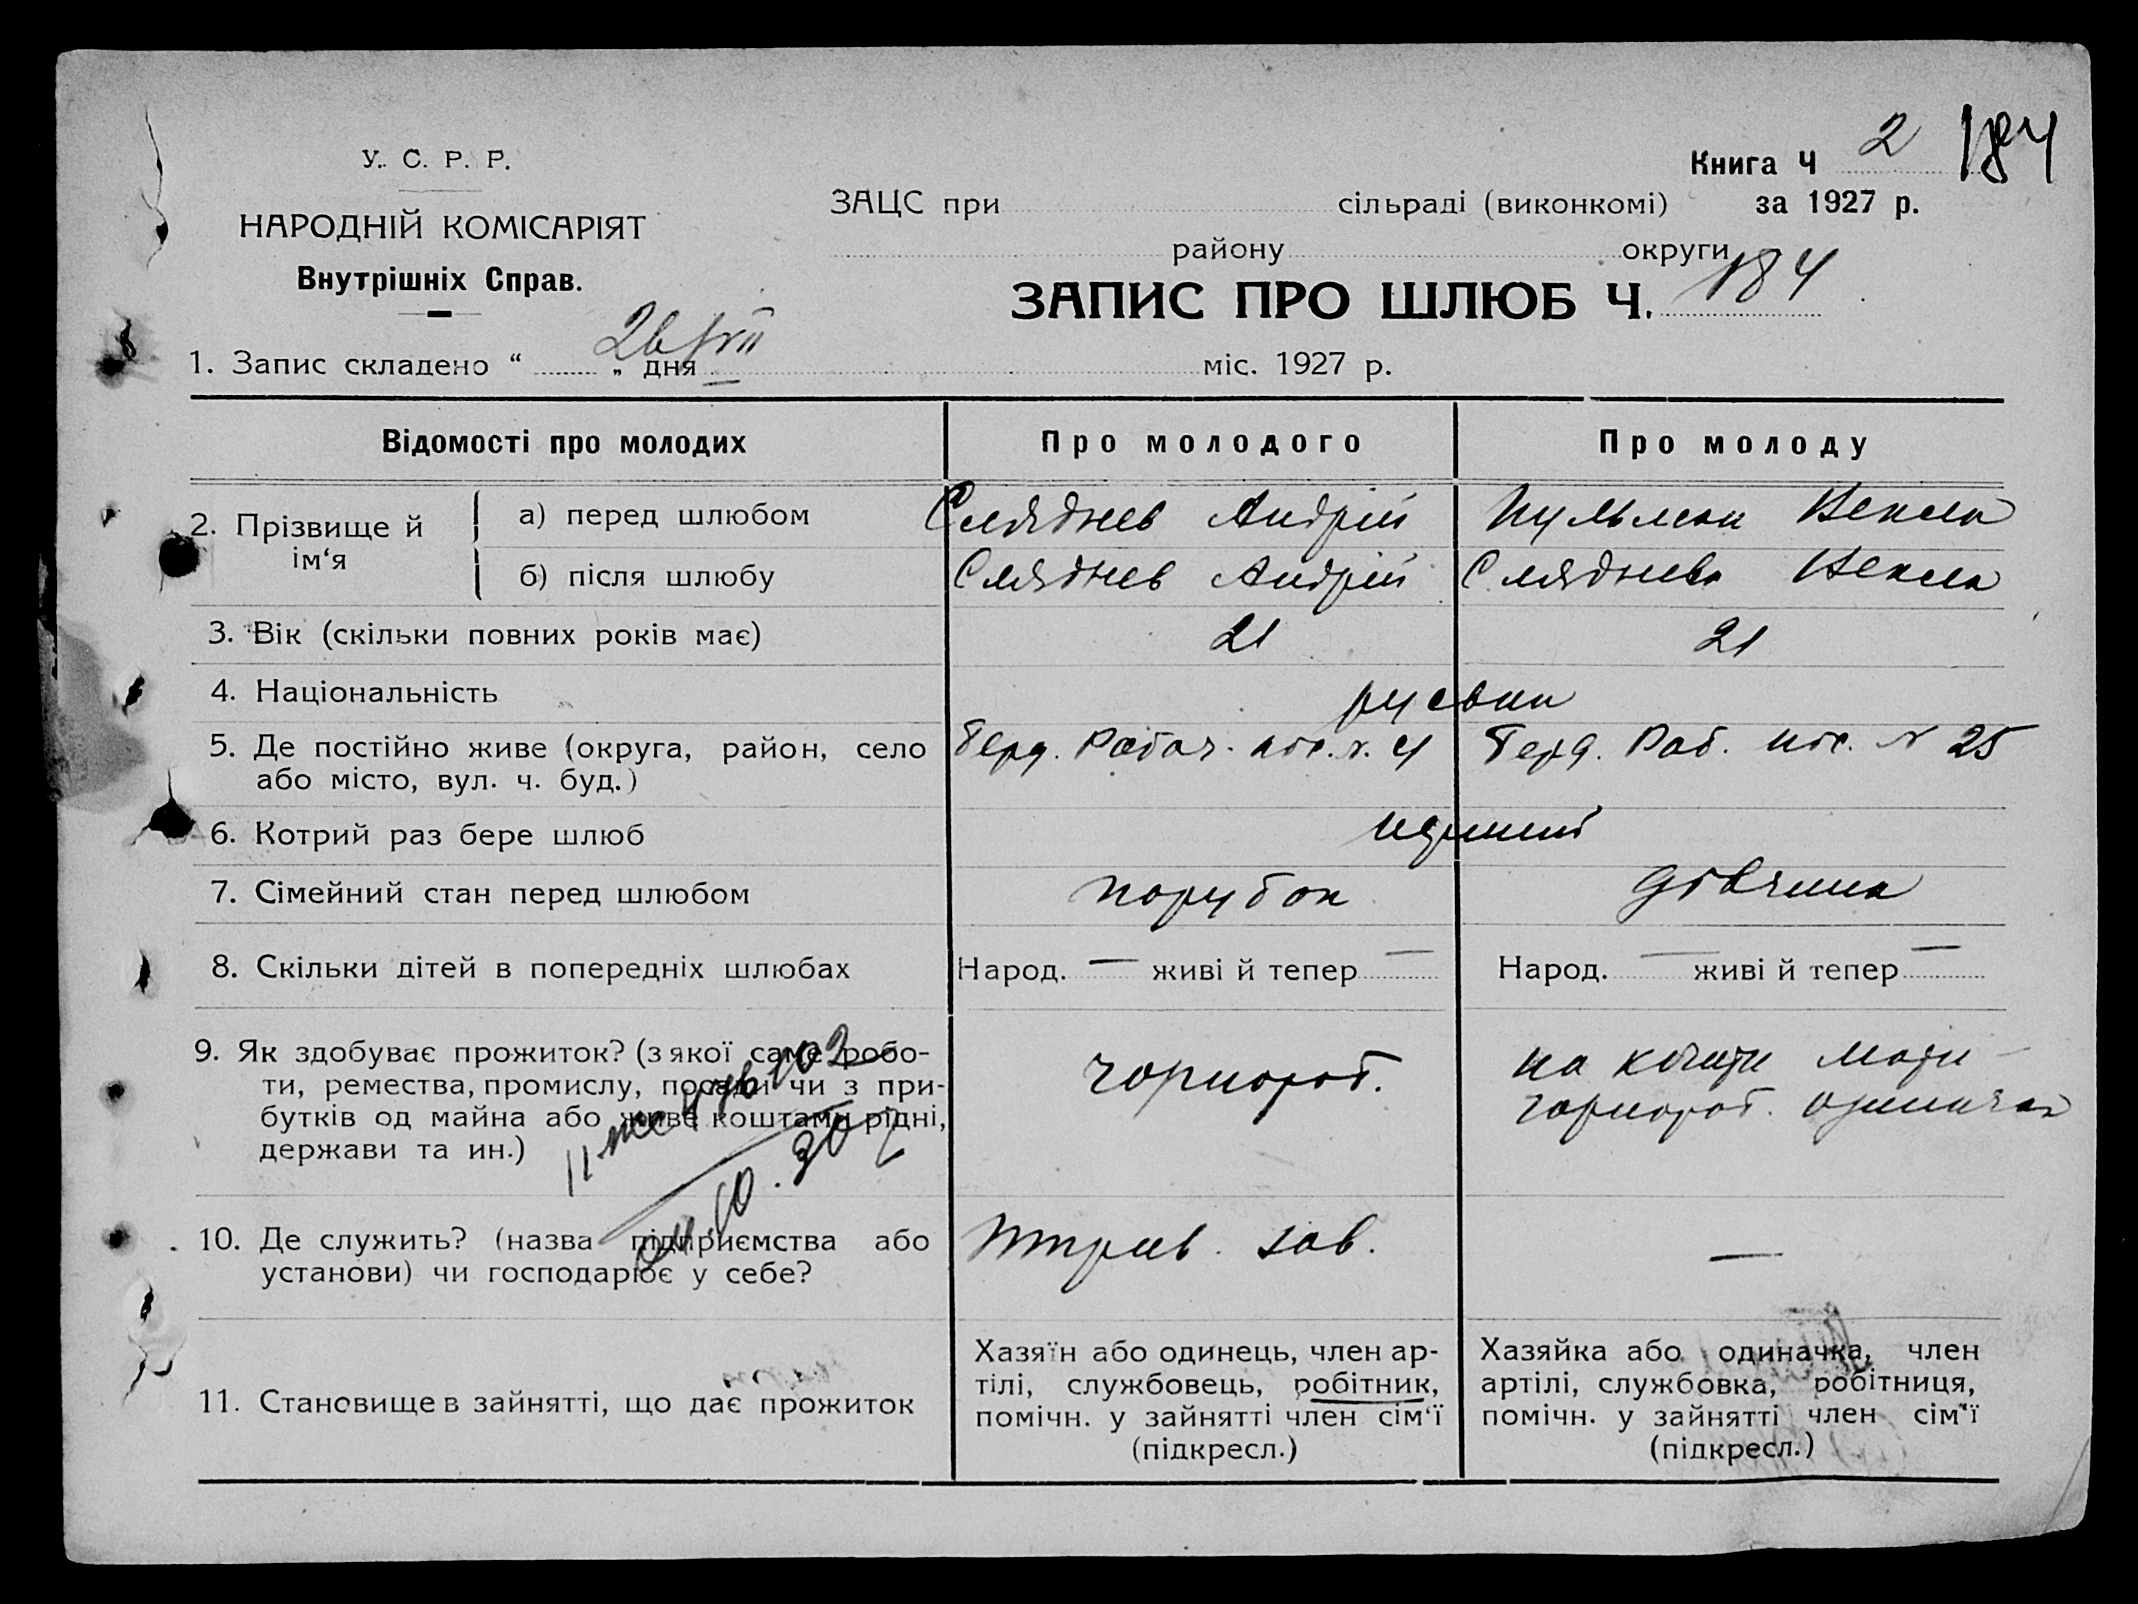 Книга Ч 2 184
У. С. Р. Р.
ЗАЦС при сільраді (виконкомі) за 1927 р.
НАРОДНІЙ КОМІСАРІЯТ
району округи
Внутрішніх Справ.
ЗАПИС ПРО ШЛЮБ Ч. 184
1. Запис складено “ 26 „ дня VII міс. 1927 р.
Відомості про молодих Про молодого Про молоду
2. Прізвище й ім‘я
а) перед шлюбом Сляднев Андрій Пульман
б) після шлюбу Сляднев Андрій Сляднева
3. Вік (скільки повних років має) 21 21
4. Національність
5. Де постійно живе (округа, район, село Берд. Рабоч. пос. N. 4 Берд. Раб. пос. N 25
або місто, вул. ч. буд.)
6. Котрий раз бере шлюб
7. Сімейний стан перед шлюбом порубок дівчина
8. Скільки дітей в попередніх шлюбах Народ. — живі й тепер — Народ. — живі й тепер —
9. Як здобуває прожиток? (з якої саме робо- чорнороб. на кошти
ти, ремества, промислу, посади чи з при- чорнороб.
бутків од майна або живе коштами рідні,
держави та ин.)
10. Де служить? (назва підприємства або зав. —
установи) чи господарює у себе?
11. Становище в зайнятті, що дає прожиток
Хазяїн або одинець, член ар-
тілі, службовець, робітник,
помічн. у зайнятті член сім‘ї
(підкресл.)
Хазяйка або одиначка, член
артілі, службовка, робітниця,
помічн. у зайнятті член сім‘ї
(підкресл.)